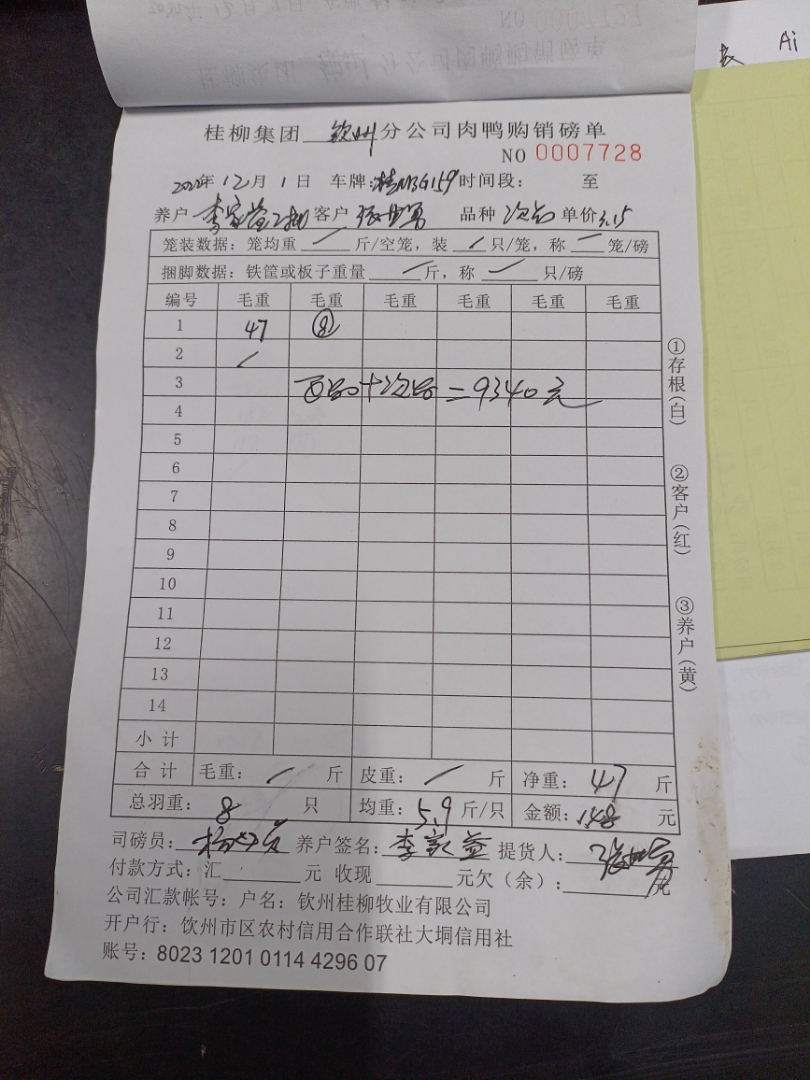 桂柳集团 钦州 分公司肉鸭购销磅单
NO 0007728
年12月1日 车牌: 时间段: 至
养户 客户 品种 次品 单价3.15
笼装数据: 笼均重 / 斤/空笼, 装 / 只/笼, 称 / 笼/磅
捆脚数据: 铁筐或板子重量 / 斤, 称 / 只/磅
编号 毛重 毛重 毛重 毛重 毛重 毛重
1 47 ⑧
2 /
3 正品+次品=9340元
4
5
6
7
8
9
10
11
12
13
14
小计
合计 毛重: / 斤 皮重: / 斤 净重: 47 斤
总羽重: 8 只 均重: 5.9 斤/只 金额: 148 元
司磅员: 养户签名: 李家益 提货人:
付款方式: 汇 元 收现 元欠(余): 元
公司汇款帐号: 户名: 钦州桂柳牧业有限公司
开户行: 钦州市区农村信用合作联社大垌信用社
账号: 8023 1201 0114 4296 07
①存根(白)
②客户(红)
③养户(黄)
Ai